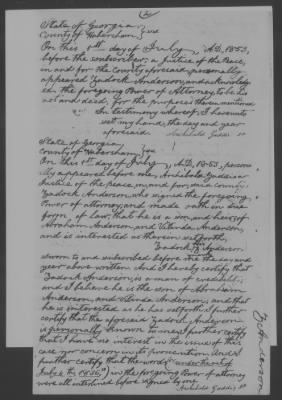 (2)
State of Georgia,
County of Habersham, } SS
On this 1st day of July, A.D. 1853,
before the subscriber, a Justice of the Peace,
in and for the County aforesaid, personally
appeared Zadock Anderson, and acknowledg-
ed the foregoing Power of Attorney, to be his
act and deed, for the purposes therein mentioned
In testimony whereof, I have unto
set my hand, the day and year
aforesaid. Archibald Gaddis
State of Georgia,
County of Habersham,
On this 1st day of July, A.D. 1853, person-
ally appeared before me, Archibald Gaddis a
Justice of the Peace, in and for said County
Zadock Anderson, who signed the foregoing
Power of attorney, and made oath in due
form of law, that he is a son, and heir of
Abraham Anderson, and Anderson,
and is interested as therein set forth,
Zadock Anderson
sworn to and subscribed before me the day and
year above written. And I hereby certify that
Zadock Anderson, is a man of credability;
and I believe he is the son of Abraham
Anderson, and Anderson, and that
he is interested as he has set forth. I further
certify that the aforesaid Zadock Anderson
is personally known to me. I further certify
that I have no interest in the issue of this
case nor concern in its prosecution. And I
further certify that the words "under the act of
July 4th 1836" in the foregoing Power of attorney
were all interlined before signed by me
Archibald Gaddis
Anderson